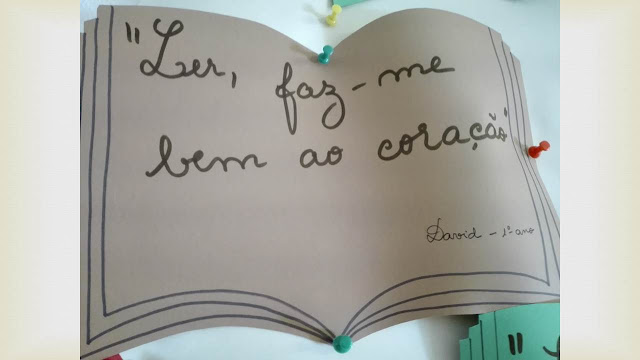 "Ler, faz-me
bem ao coração"
David - 1º ano
"